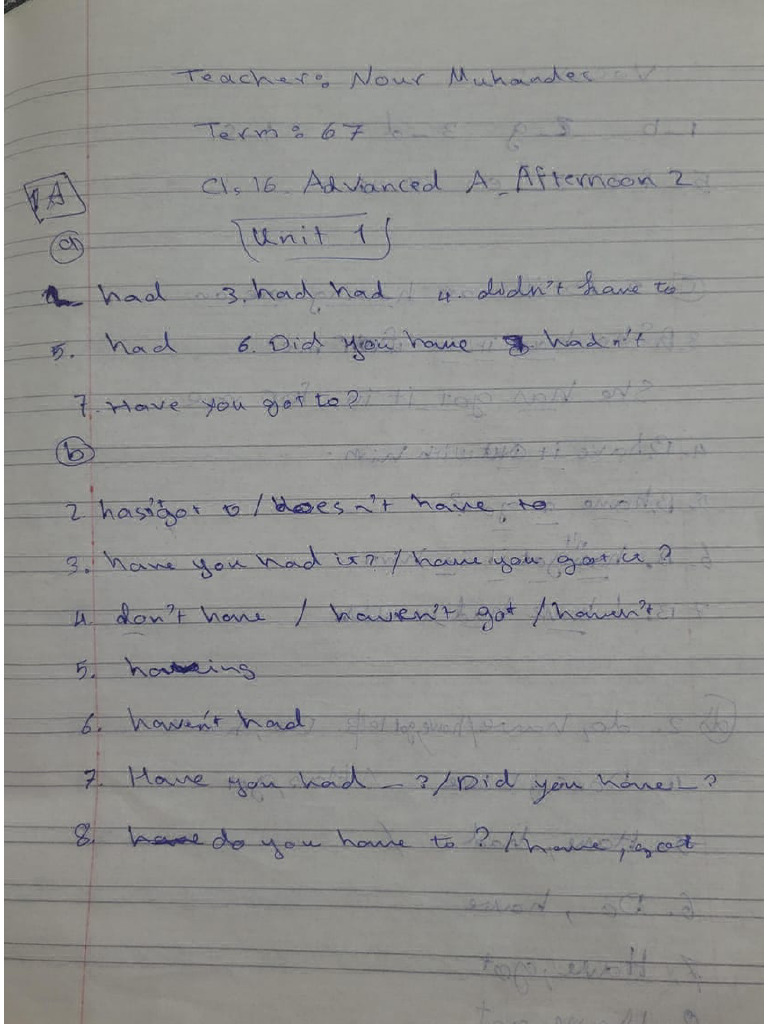 Teacher: Nour Muhandes
Term: 67
Cl. 16 Advanced A_Afternoon 2
1A
Unit 1
a
had 3. had, had 4. didn't have to
5. had 6. Did you have hadn't
7. Have you got to?
b
2 has got to / doesn't have to
3. have you had it? / have you got it?
4. don't have / haven't got / haven't
5. having
6. haven't had
7. Have you had _ ? / Did you have _ ?
8. do you have to ? / have,